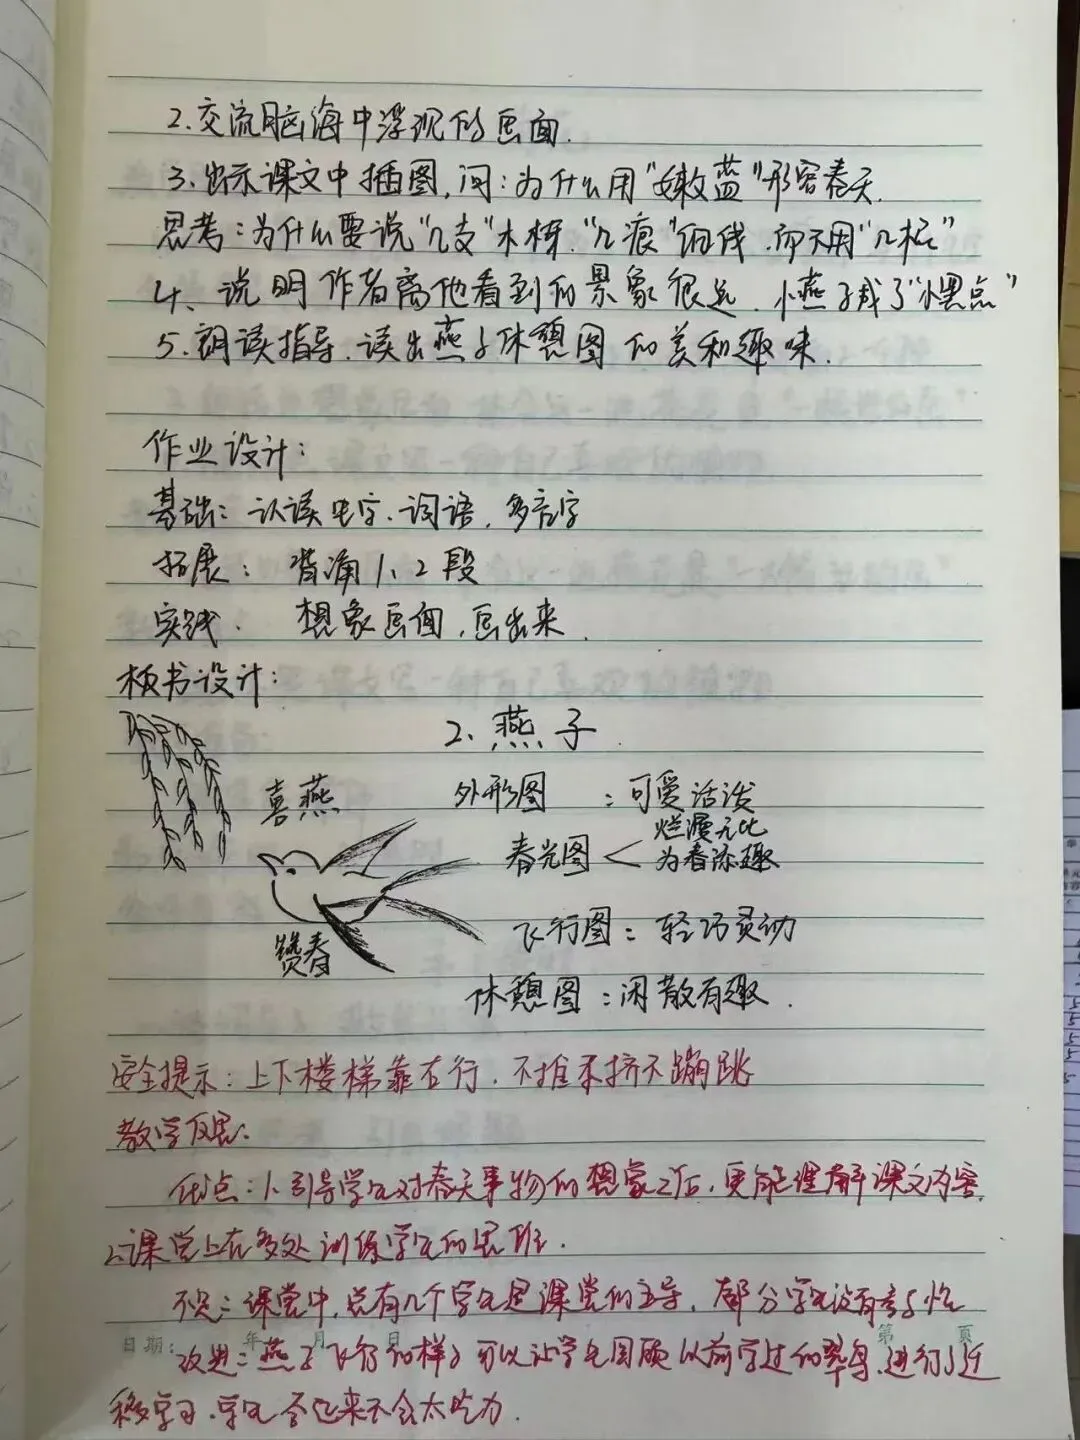 2.交流脑海中浮现的画面.
3.出示课文中插图,问:为什么用"嫩蓝"形容春天.
思考:为什么要说"几支"木杆."几痕"细线.而不用"几根"
4、说明作者离他看到的景象很远.小燕子成了"小黑点"
5.朗读指导.读出燕子休憩图的美和趣味.
作业设计:
基础:认读生字、词语、多音字
拓展:背诵1、2段
实践. 想象画面,画出来.
板书设计:
2.燕子.
喜燕
外形图:可爱活泼
春光图<烂漫无比
为春添趣
飞行图:轻巧灵动
赞春
休憩图:闲散有趣.
安全提示:上下楼梯靠右行.不推不挤不蹦跳
教学反思.
优点:1.引导学生对春天事物的想象之后,更能理解课文内容.
2.课堂上在多处训练学生的思维.
不足:课堂中,总有几个学生是课堂的主导,部分学生没有参与性
日期: 年 月 日 第 页
改进:燕子飞行的样子可以让学生回顾以前学过的翠鸟.进行迁
移学习.学生答起来不会太吃力.